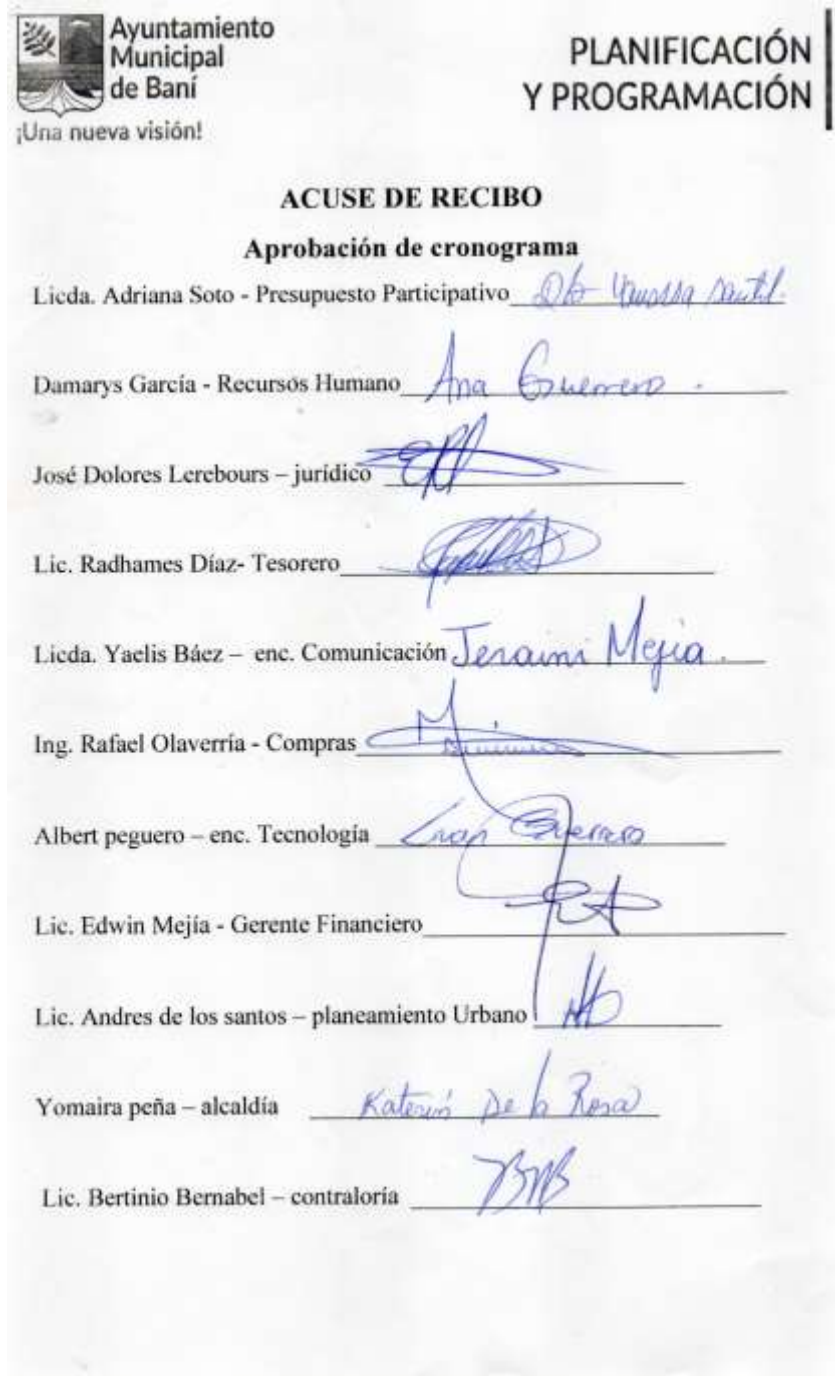 Ayuntamiento
Municipal
de Baní
¡Una nueva visión!
PLANIFICACIÓN
Y PROGRAMACIÓN
ACUSE DE RECIBO
Aprobación de cronograma
Licda. Adriana Soto - Presupuesto Participativo
Damarys García - Recursos Humano Ana Guerrero.
José Dolores Lerebours – jurídico
Lic. Radhames Díaz- Tesorero
Licda. Yaelis Báez – enc. Comunicación Jeraimi Mejia.
Ing. Rafael Olaverría - Compras
Albert peguero – enc. Tecnología Guerrero
Lic. Edwin Mejía - Gerente Financiero
Lic. Andres de los santos – planeamiento Urbano
Yomaira peña – alcaldía De la Rosa
Lic. Bertinio Bernabel – contraloría